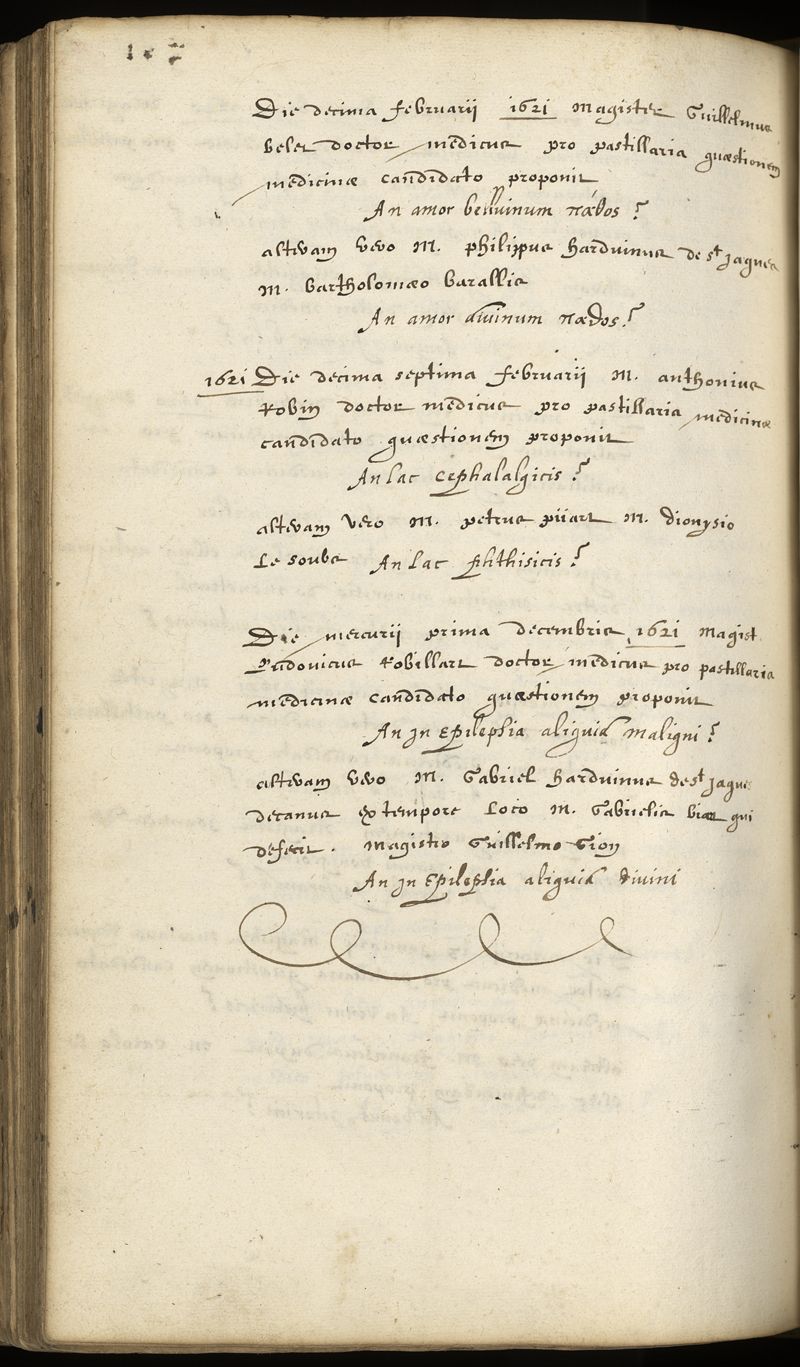 Die decima februarii 1621 Magister Guillelmus
beler doctor medicus pro pastillaria quæstionem
medicinæ candidato proponit
An amor belluinum πάθος?
alteram vero M. philippus harduinus de st Jaques
M. bartholomæo barallis
An amor divinum παθος?
1621 Die decima septima februarii M. anthonius
Robin doctor medicus pro pastillaria medicinæ
candidato quæstionem proponit
An lac cephalalgicis?
alteram vero M. petrus piiart M. dionysio
Le soubs An lac phthisicis?
Die mercurii prima decembris 1621 Magist
Ludovicus Robillart doctor medicus pro pastillaria
medicinæ candidato quæstionem proponit
An in Epilepsia aliquid maligni?
alteram vero M. Gabriel harduinus de st Jaque
decanus ex tempore loco M. Gabrielis qui
defecit. Magistro Guillelmo Gion
An in Epilepsia aliquid divini